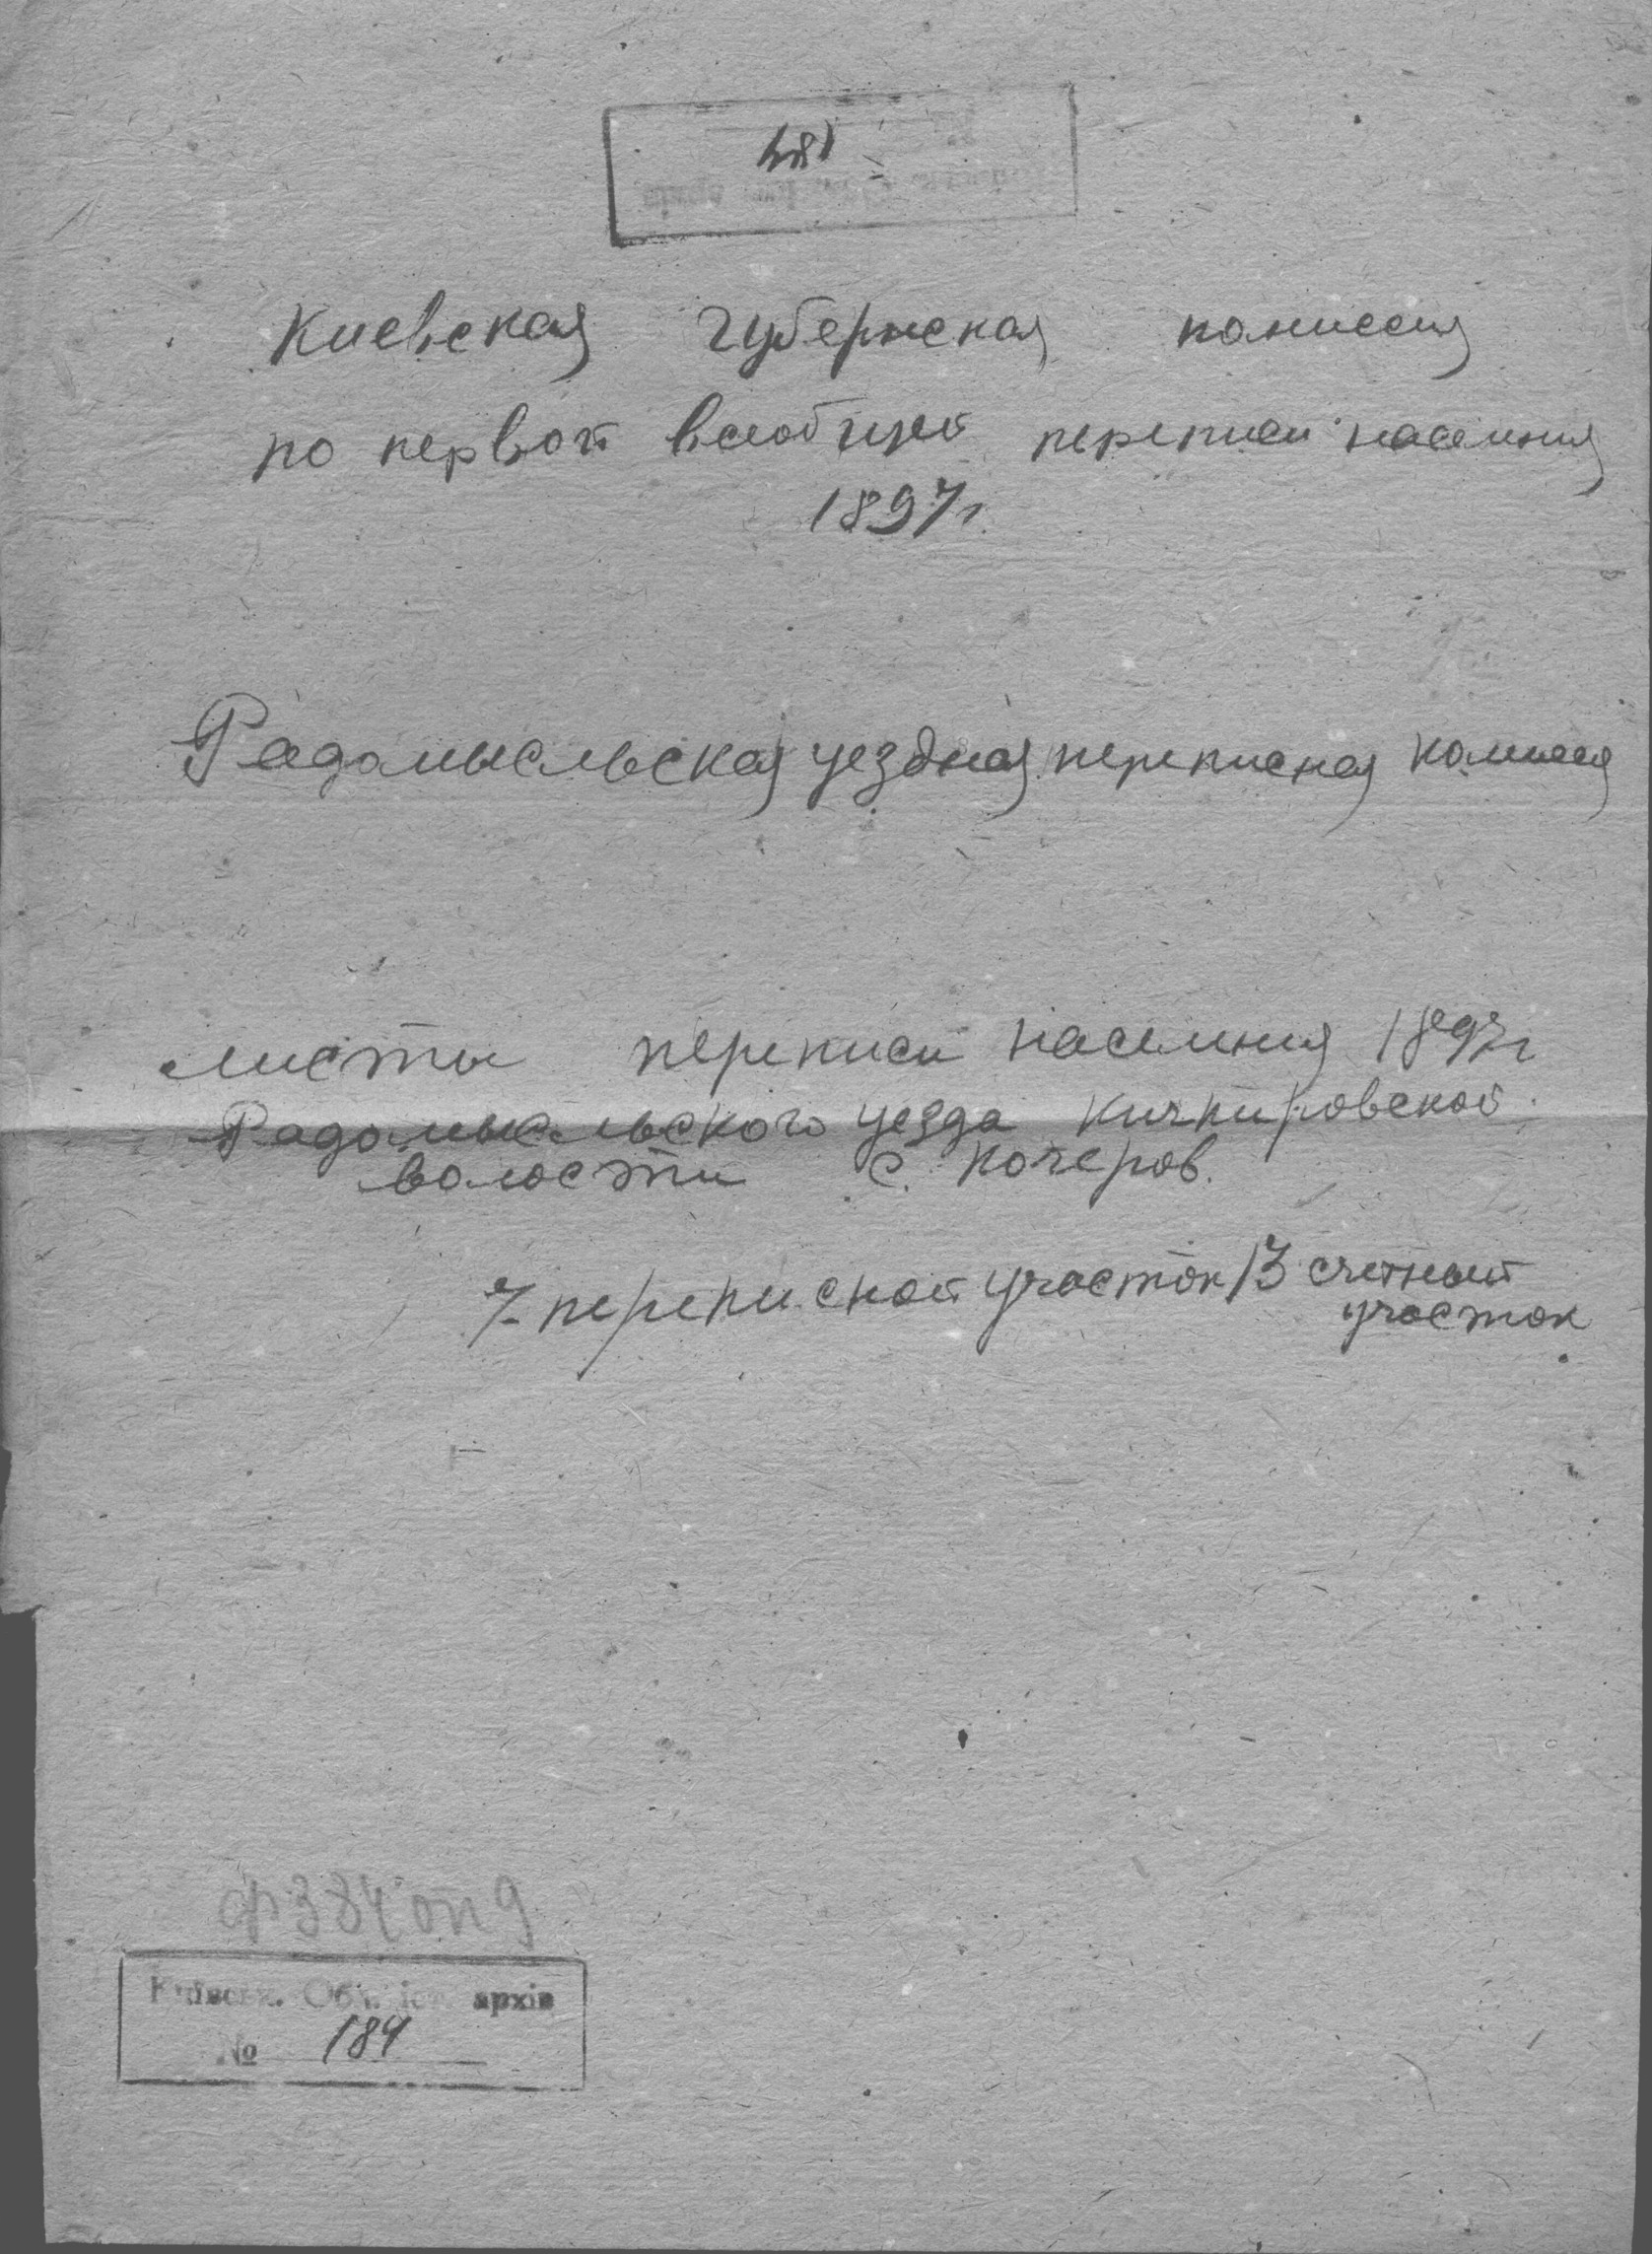 Киевская губернская комиссия
по первой всеобщей переписи населения
1897г.
Радомысльская уездная переписная комиссия
Листы переписи населения 1897г
Радомысльского уезда Кичкировской
волости с. Кочеров.
7 переписной участок 13 счетный
участок
ф 384 оп 9
Київськ. Обл. іст. архів
№ 184